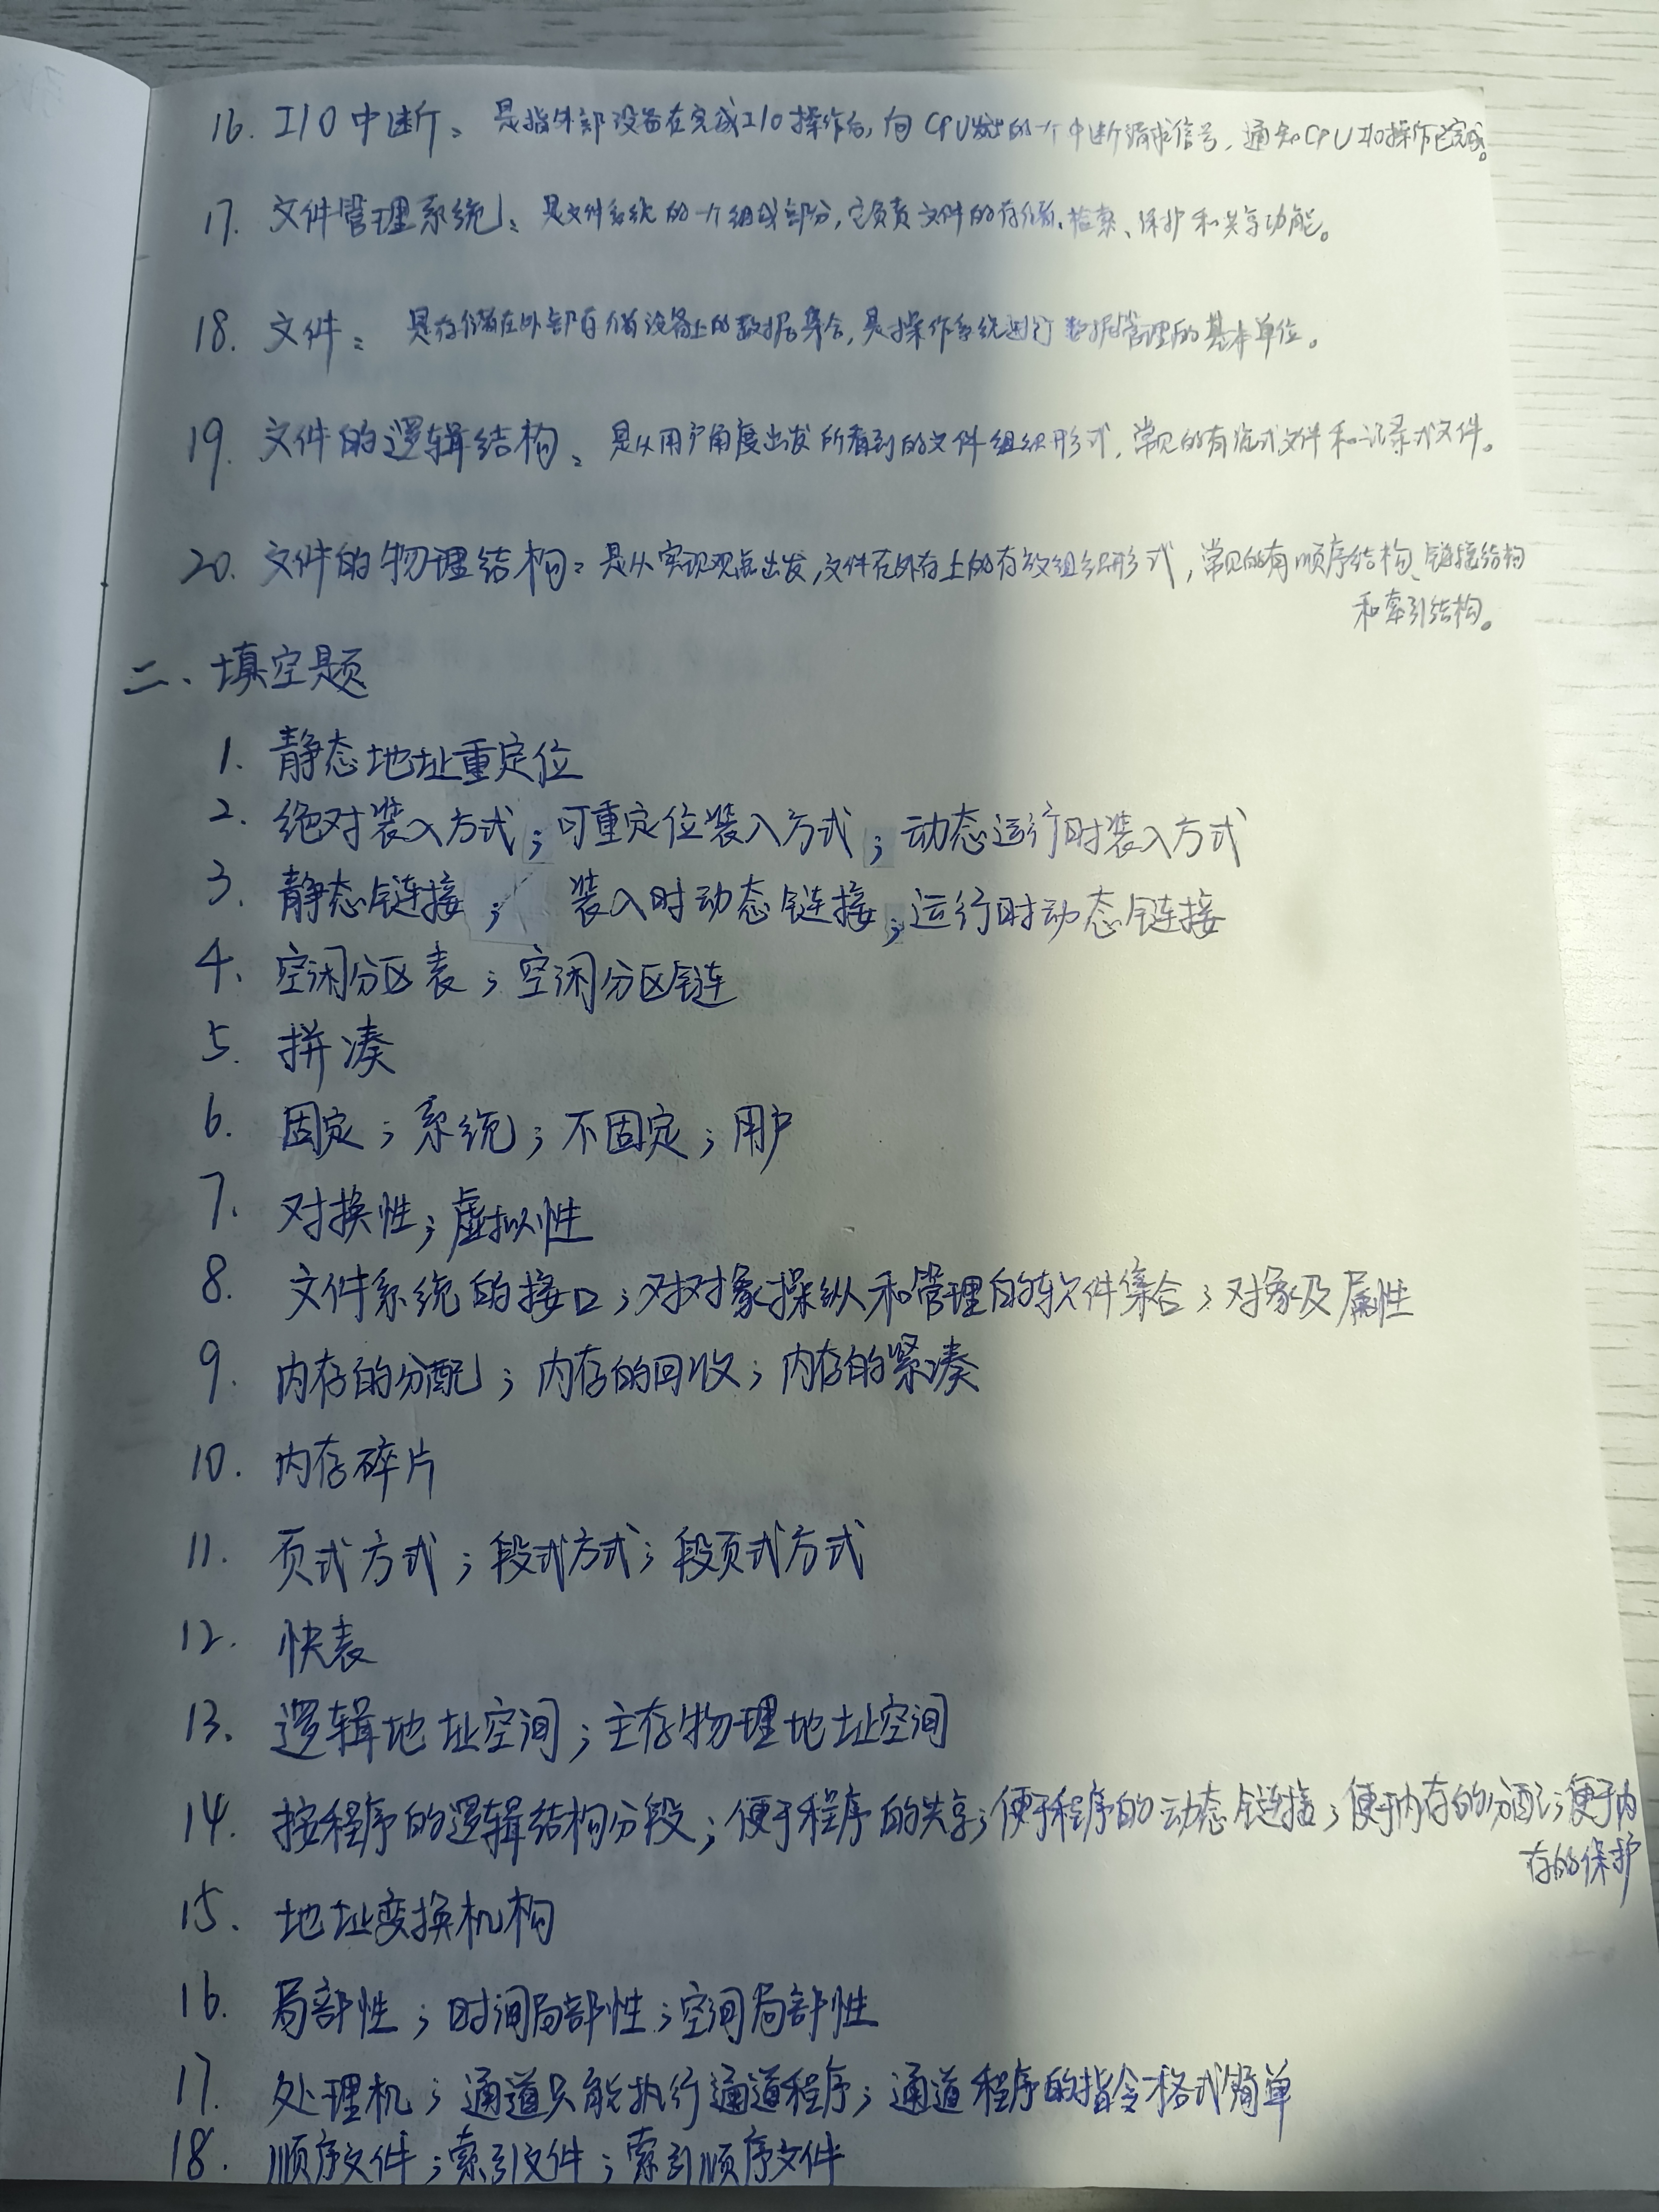 16. I/O中断: 是指外部设备在完成I/O操作后,向CPU发出的一个中断请求信号,通知CPU I/O操作已完成。
17. 文件管理系统: 是文件系统的一个组成部分,它负责文件的存储、检索、保护和共享功能。
18. 文件: 是存储在外部存储设备上的数据集合,是操作系统进行数据管理的基本单位。
19. 文件的逻辑结构: 是从用户角度出发所看到的文件组织形式,常见的有流式文件和记录式文件。
20. 文件的物理结构: 是从实现观点出发,文件在外存上的存放组织形式,常见的有顺序结构、链接结构
和索引结构。
二、填空题
1. 静态地址重定位
2. 绝对装入方式;可重定位装入方式;动态运行时装入方式
3. 静态链接; 装入时动态链接;运行时动态链接
4. 空闲分区表;空闲分区链
5. 拼凑
6. 固定;系统;不固定;用户
7. 对换性;虚拟性
8. 文件系统的接口;对对象操纵和管理的软件集合;对象及属性
9. 内存的分配;内存的回收;内存的紧凑
10. 内存碎片
11. 页式方式;段式方式;段页式方式
12. 快表
13. 逻辑地址空间;主存物理地址空间
14. 按程序的逻辑结构分段;便于程序的共享;便于程序的动态链接;便于内存的分配;便于内
存的保护
15. 地址变换机构
16. 局部性;时间局部性;空间局部性
17. 处理机;通道只能执行通道程序;通道程序的指令格式简单
18. 顺序文件;索引文件;索引顺序文件